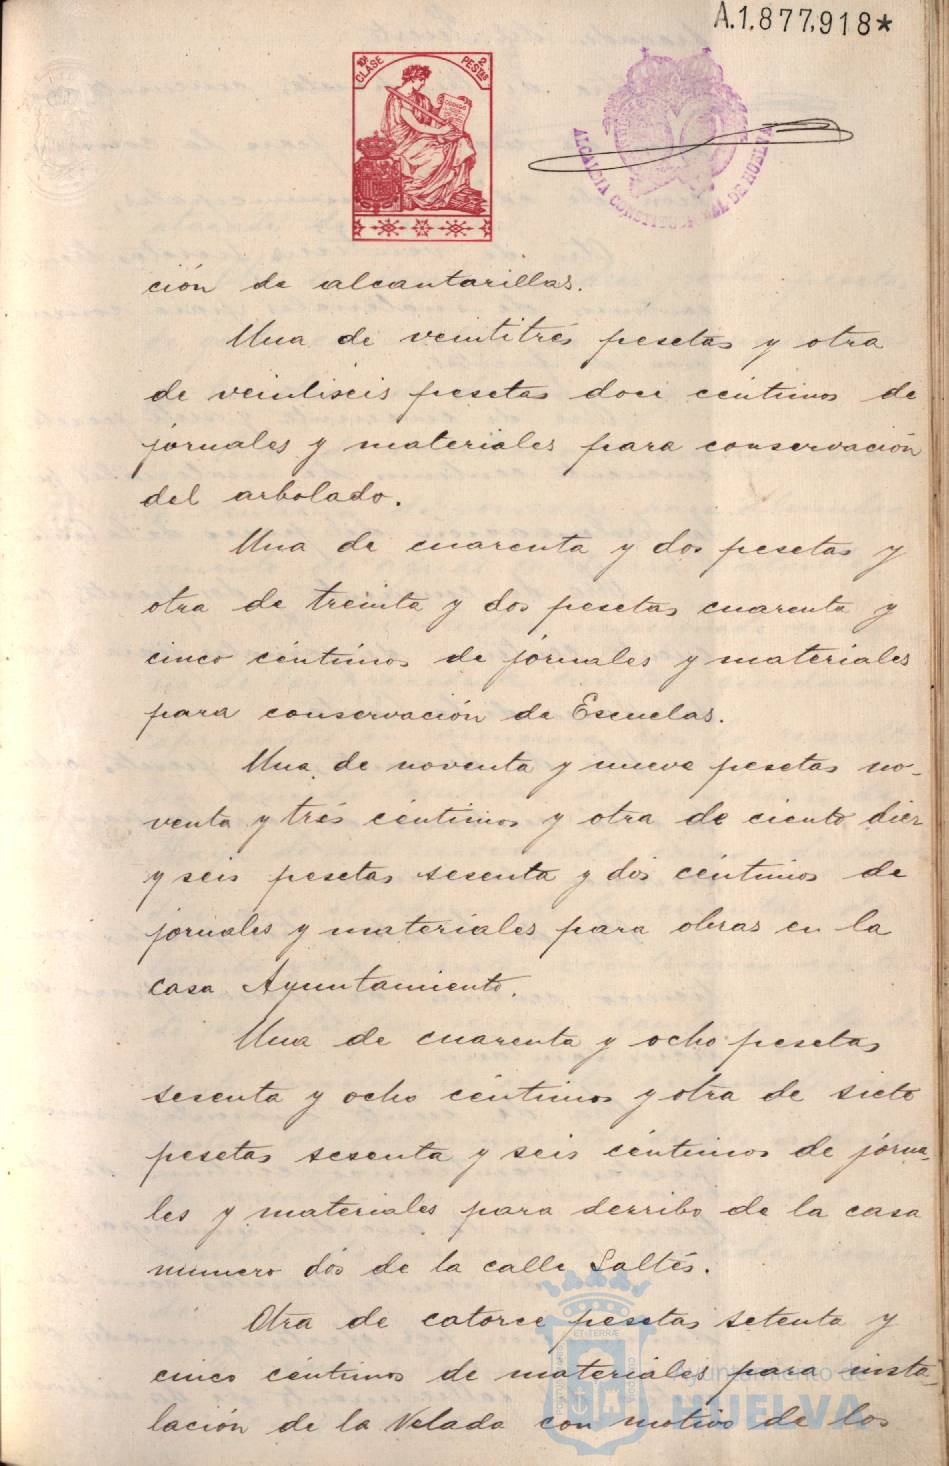 A.1.877,918*
10ª CLASE
2 PESTAS
ALCALDIA CONSTITUCIONAL DE HUELVA
ción de alcantarillas.
Una de veintitrés pesetas y otra
de veintiseis pesetas doce céntimos de
jornales y materiales para conservación
del arbolado.
Una de cuarenta y dos pesetas y
otra de treinta y dos pesetas cuarenta y
cinco céntimos de jornales y materiales
para conservación de Escuelas.
Una de noventa y nueve pesetas no-
venta y trés céntimos y otra de ciento diez
y seis pesetas sesenta y dos céntimos de
jornales y materiales para obras en la
casa Ayuntamiento.
Una de cuarenta y ocho pesetas
sesenta y ocho céntimos y otra de siete
pesetas sesenta y seis céntimos de jorna-
les y materiales para derribo de la casa
numero dós de la calle Saltés.
Otra de catorce pesetas setenta y
cinco céntimos de materiales para insta-
lación de la Velada con motivo de los
ET·TERRÆ
Ayuntamiento de
HUELVA